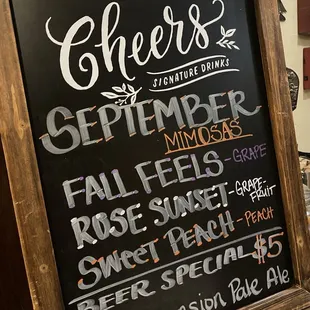 Cheers
SIGNATURE DRINKS
SEPTEMBER
MIMOSAS
FALL FEELS - GRAPE
ROSE SUNSET - GRAPE-
FRUIT
SWEET PEACH - PEACH
BEER SPECIAL $5
Pale Ale